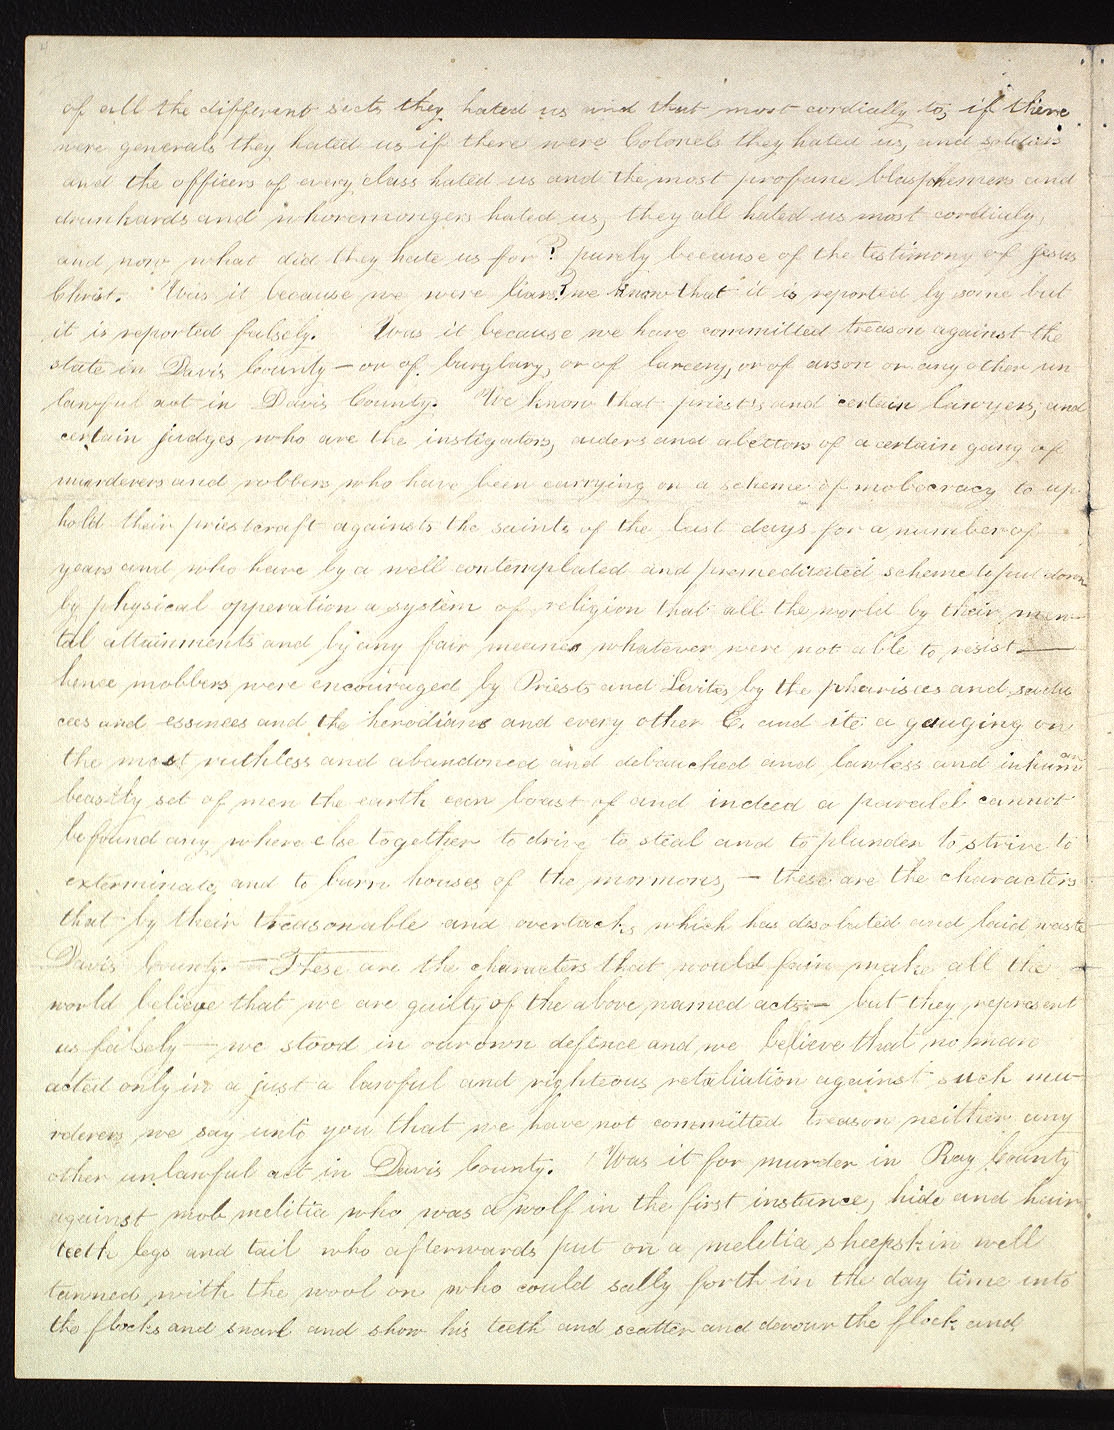 of all the different sects they hated us and that most cordially to, if there
were generals they hated us if there were Colonels they hated us, and soldiers
and the officers of every class hated us and the most profane blasphemers and
drunkards and whoremongers hated us, they all hated us most cordialy,
and now what did they hate us for? purely because of the testimony of Jesus
Christ. Was it because we were liars? we know that it is reported by some but
it is reported falsely. Was it because we have committed treason against the
state in Davis County — or of burglary, or of larceny, or of arson or any other un
lawful act in Davis County. We know that priests, and certain lawyers, and
certain judges who are the instigators, aiders and abettors of a certain gang of
murderers and robbers who have been carrying on a scheme of mobocracy to up
hold their priestcraft againsts the saints of the last days for a number of
years and who have by a well contemplated and premeditated scheme to put down
by physical opperation a system of religion that all the world by their men-
tal attainments and by any fair meanes whatever were not able to resist —
hence mobbers were encouraged by Priests and Levites, by the pharisees and sadu
cees and essenees and the herodians and every other E. and ite a gauging on
the most ruthless and abandoned and debauched and lawless and inhuman
beastly set of men the earth can boast of and indeed a paralel cannot
be found any where else together to drive to steal and to plunder to strive to
exterminate, and to burn houses of the mormons, — these are the characters
that by their treasonable and overtacks which has desolated and laid waste
Davis County. — These are the characters that would fain make all the
world believe that we are guilty of the above named acts — but they represent
us falsely — we stood in our own defence and we believe that no man
acted only in a just a lawful and righteous retaliation against such mu-
rderers we say unto you that we have not committed treason neither any
other unlawful act in Davis County. Was it for murder in Ray County
against mob melitia who was a wolf in the first instance, hide and hair
teeth legs and tail who afterwards put on a melitia sheepskin well
tanned with the wool on who could sally forth in the day time into
the flocks and snarl and show his teeth and scatter and devour the flock and